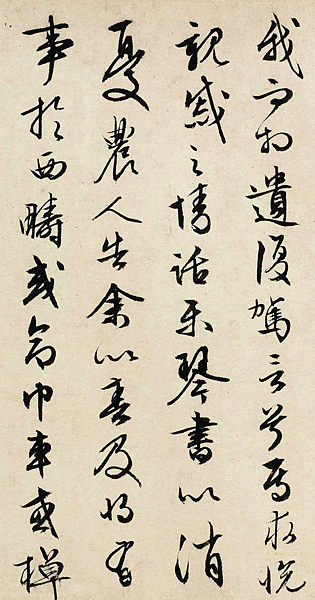 我而相遺復駕言兮焉求悅
親戚之情話樂琴書以消
憂農人告余以春及將有
事於西疇或命巾車或棹